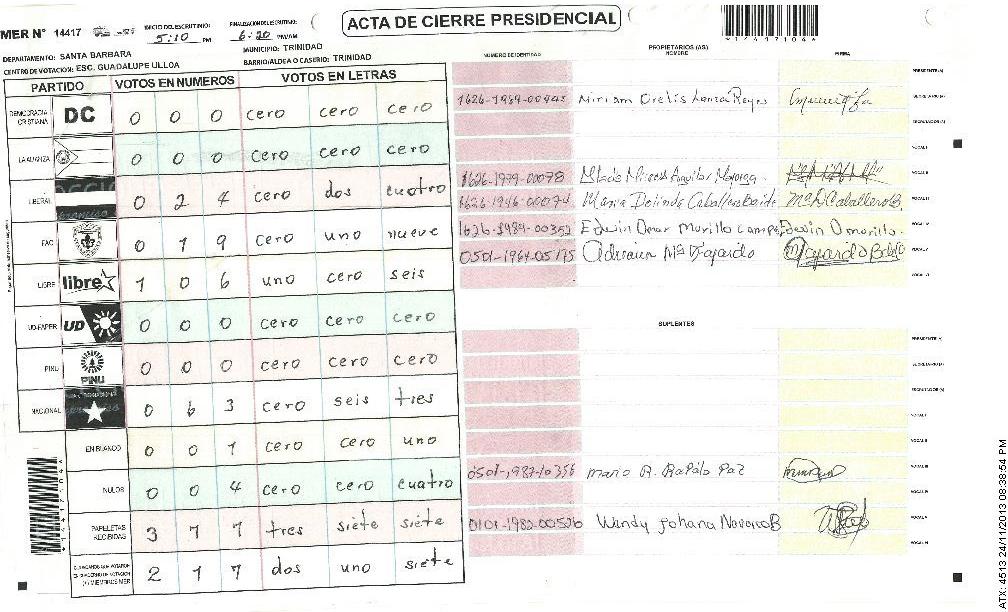 ACTA DE CIERRE PRESIDENCIAL
MER N° 14417
INICIO DEL ESCRUTINIO: 5:10 PM
FINALIZACION DEL ESCRUTINIO: 6:20 PM/AM
*1441710 4*
DEPARTAMENTO: SANTA BARBARA
MUNICIPIO: TRINIDAD
CENTRO DE VOTACION: ESC. GUADALUPE ULLOA
BARRIO/ALDEA O CASERIO: TRINIDAD
PARTIDO VOTOS EN NUMEROS VOTOS EN LETRAS
DEMOCRACIA CRISTIANA DC 0 0 0 cero cero cero
LA ALIANZA 0 0 0 cero cero cero
LIBERAL 0 2 4 cero dos cuatro
FAC 0 1 9 cero uno nueve
LIBRE libre 1 0 6 uno cero seis
UD-FAPER UD 0 0 0 cero cero cero
PINU PINU 0 0 0 cero cero cero
NACIONAL 0 6 3 cero seis tres
EN BLANCO 0 0 1 cero cero uno
NULOS 0 0 4 cero cero cuatro
PAPELETAS RECIBIDAS 3 7 7 tres siete siete
2 1 7 dos uno siete
NUMERO DE IDENTIDAD
PROPIETARIOS (AS)
NOMBRE
FIRMA
PRESIDENTE(A)
Miriam Orelis Lanza Reyes
SECRETARIO(A)
ESCRUTADOR(A)
VOCAL I
1626-1979-00078
VOCAL II
1626-1946-00074 Maria Delinda Caballero
VOCAL III
1626-1989-00352 Edwin Omar Murillo Edwin O murillo.
VOCAL IV
0501-1964-05175 Adriana Mª Fajardo
VOCAL V
VOCAL VI
SUPLENTES
PRESIDENTE(A)
SECRETARIO(A)
ESCRUTADOR(A)
VOCAL I
VOCAL II
0501-1987-10356 Mario R. Rapalo Paz
VOCAL III
VOCAL IV
0101-1980-00526 Wendy Johana
VOCAL V
VOCAL VI
ATX: 4513 24/11/2013 08:38:54 PM